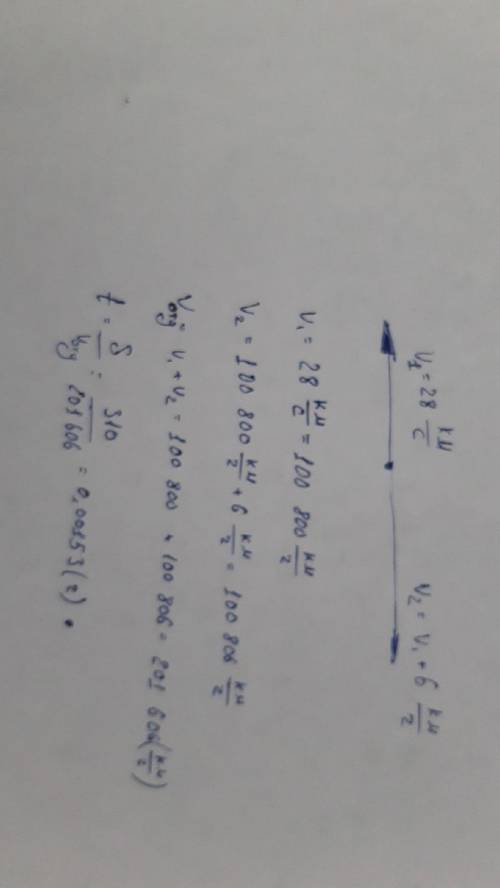 V₁ = 28 км/с V₂ = V₁ + 6 км/г
V₁ = 28 км/с = 100 800 км/г
V₂ = 100 800 км/г + 6 км/г = 100 806 км/г
Vотд = V₁ + V₂ = 100 800 + 100 806 = 201 606 (км/г)
t = S/Vотд = 310/201 606 = 0,00153 (г) .